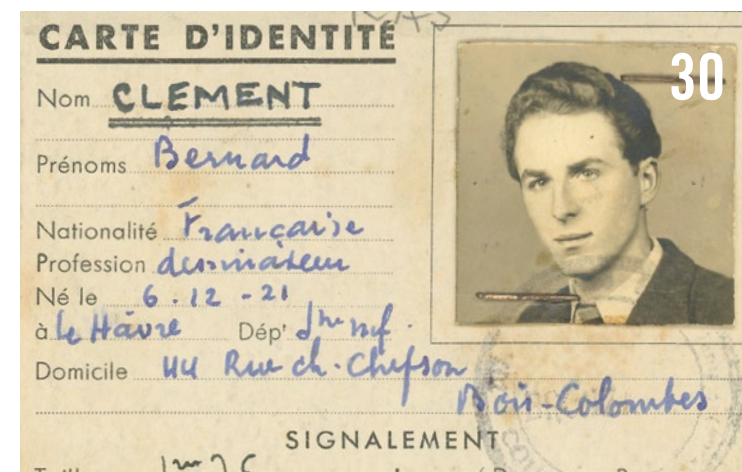 CARTE D'IDENTITÉ
30
Nom CLEMENT
Prénoms Bernard
Nationalité Française
Profession dessinateur
Né le 6.12-21
à le Hâvre Dépt Sne inf.
Domicile 44 Rue ch. Chefson
Bois-Colombes
SIGNALEMENT